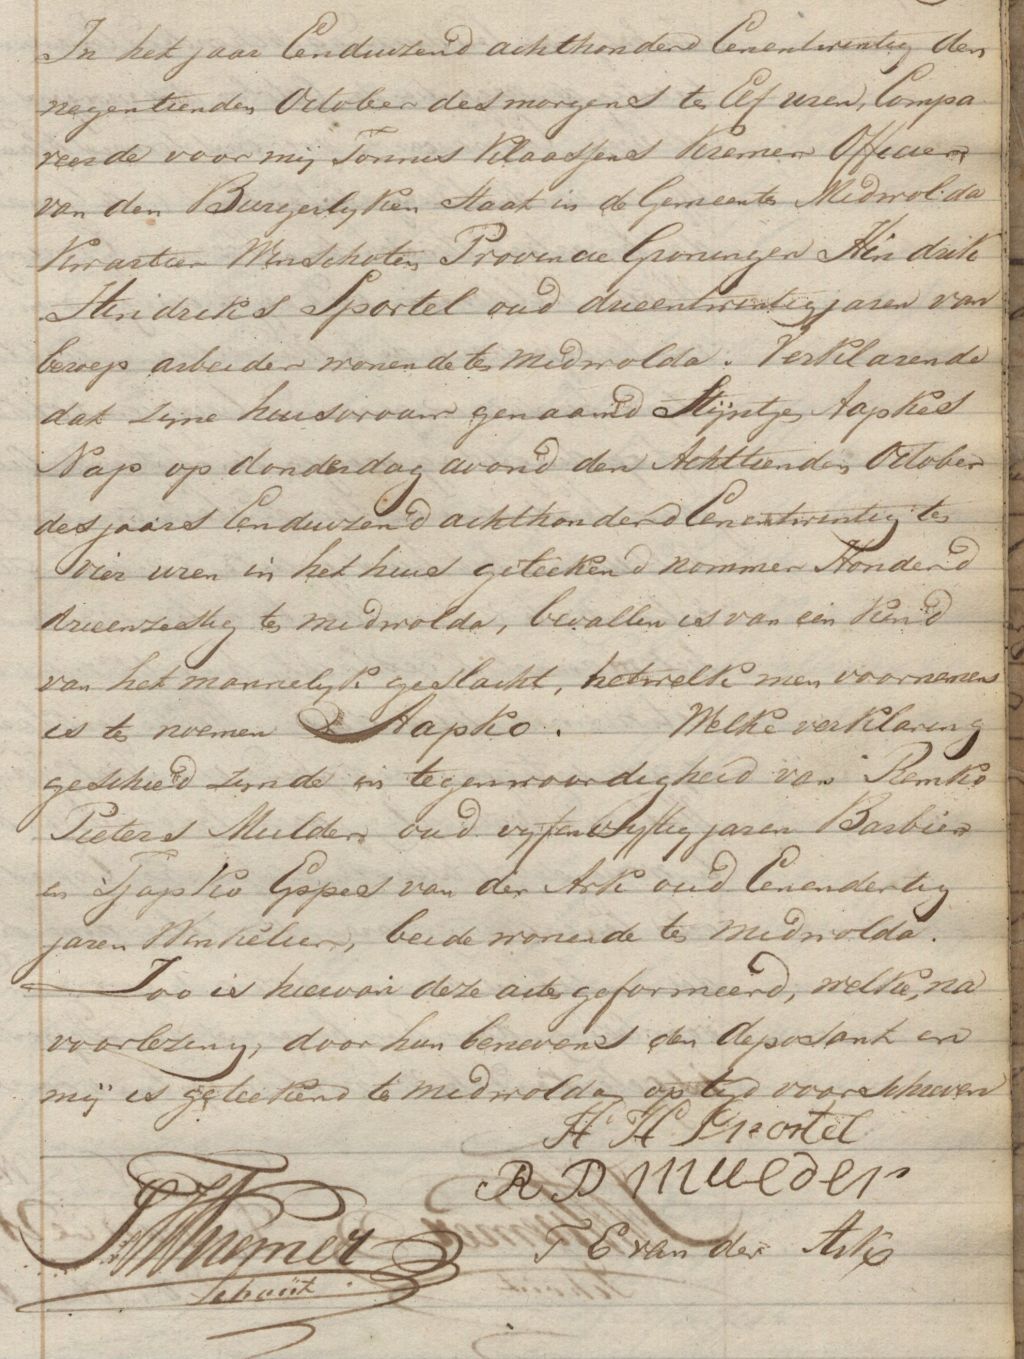 In het jaar Eenduizend achthonderd Eenentwintig den
negentienden October des morgens te Elf uren, Compa
reerde voor mij Tonnis Klaassens Kremer Officier
van den Burgerlyken Staat in de Gemeente Midwolda
Kwartier Winschoten Provincie Groningen Hindrik
Hindriks Sportel oud drieentwintig jaren van
beroep arbeider wonende te Midwolda. Verklarende
dat zyne huisvrouw genaamd Stijntje Aapkes
Nap op donderdag avond den Achttienden October
des jaars Eenduizend achthonderd Eenentwintig te
vier uren in het huis geteekend nommer Honderd
drieenzestig te midwolda, bevallen is van een kind
van het mannelyk geslacht, hetwelk men voornemens
is te noemen Aapko. Welke verklaring
geschied zynde in tegenwoordigheid van Remko
Pieters Mulder oud vyfenvyftig jaren Barbier
en Tjapko Eppes van der Ark oud Eenendertig
jaren Winkelier, beide wonende te Midwolda.
Zoo is hiervan deze acte geformeerd, welke, na
voorlezing, door hun benevens den deposant en
mij is geteekend te midwolda op tyd voorschreven
H H Sportel
R P Mulder
T E van der Ark
TKKremer
Schout